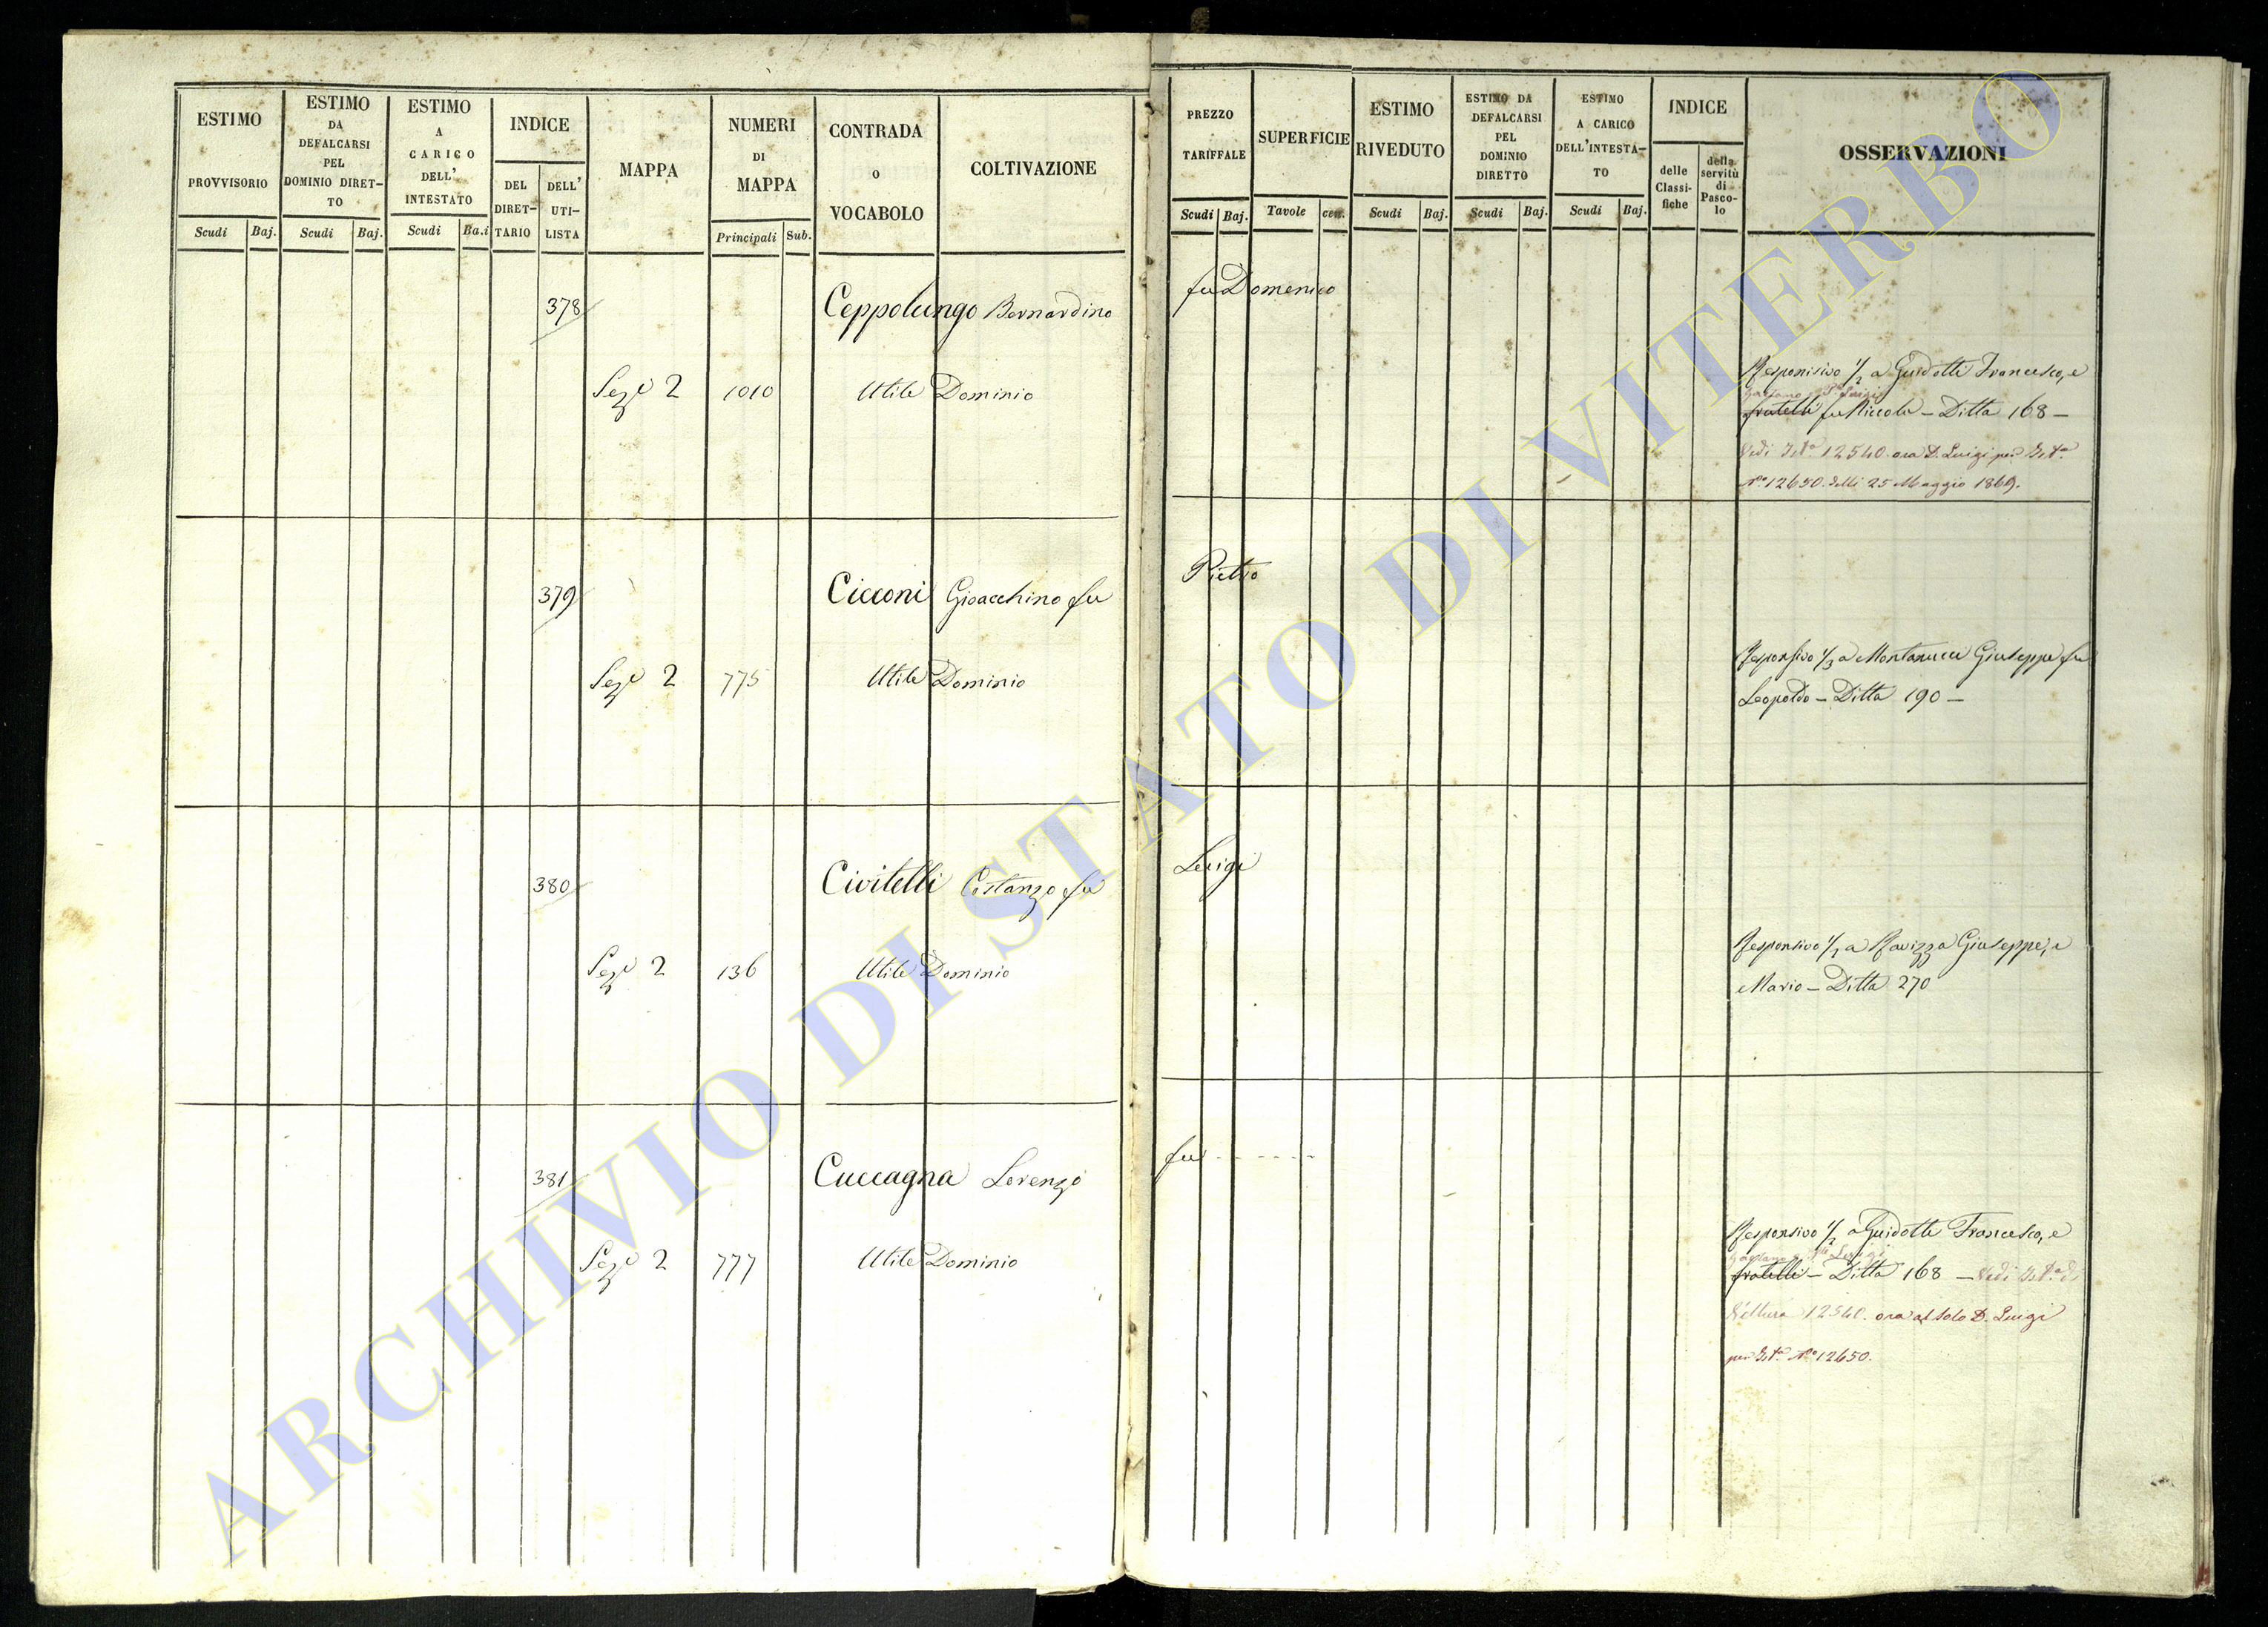 ESTIMO PROVVISORIO
Scudi Baj.
ESTIMO DA DEFALCARSI PEL DOMINIO DIRET-TO
Scudi Baj.
ESTIMO A CARICO DELL' INTESTATO
Scudi Ba.i
INDICE
DEL DIRET-TARIO
DELL' UTI-LISTA
MAPPA
NUMERI DI MAPPA
Principali Sub.
CONTRADA O VOCABOLO
COLTIVAZIONE
PREZZO TARIFFALE
Scudi Baj.
SUPERFICIE
Tavole cen.
ESTIMO RIVEDUTO
Scudi Baj.
ESTIMO DA DEFALCARSI PEL DOMINIO DIRETTO
Scudi Baj.
ESTIMO A CARICO DELL'INTESTA-TO
Scudi Baj.
INDICE
delle Classi-fiche
della servitù di Pasco-lo
OSSERVAZIONI
378 Ceppolungo Bernardino fu Domenico
Sez.e 2 1010 Utile Dominio
Responsivo 1/2 a Guidotti Francesco, e
Gaetano e D. Luigi
fratelli fu Niccola – Ditta 168 –
Vedi Ist.a 12540. ora D. Luigi per Ist.a
N.o 12650. delli 25 Maggio 1869.
379 Cicconi Gioacchino fu Pietro
Sez.e 2 775 Utile Dominio
Responsivo 1/3 a Montanucci Giuseppe fu
Leopoldo – Ditta 190 –
380 Civitelli Costanzo fu Luigi
Sez.e 2 136 Utile Dominio
Responsivo 1/2 a Ravizza Giuseppe, e
Mario – Ditta 270
381 Cuccagna Lorenzo fu - - - - - -
Sez.e 2 777 Utile Dominio
Responsivo 1/2 a Guidotti Francesco, e
Gaetano e Luigi
fratelli – Ditta 168 – Vedi Ist.a di
Voltura 12540. ora al solo D. Luigi
per Ist.a N.o 12650.
ARCHIVIO DI STATO DI VITERBO